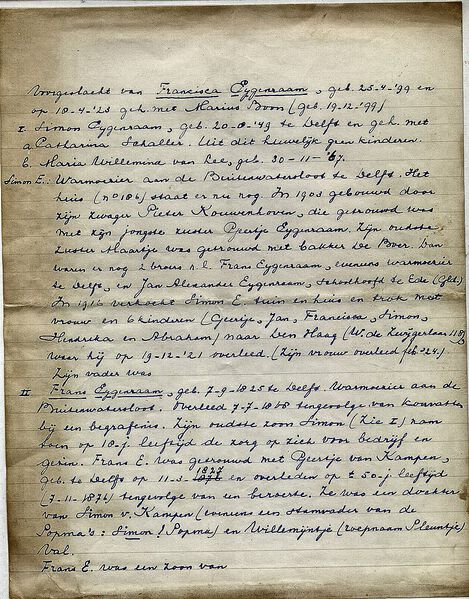 Voorgeslacht van Francisca Eygenraam, geb. 25-4-'99 en
op 18-4-'23 geh. met Marius Boon (geb. 19-12-'99)
I. Simon Eygenraam, geb. 20-8-'49 te Delft en geh. met
a. Catharina Schaller. Uit dit huwelijk geen kinderen.
b. Maria Willemina van Lee, geb. 30-11-'67.
Simon E.: Warmoezier aan de Buitenwatersloot te Delft. Het
huis (no 186) staat er nu nog. In 1903 gebouwd door
zijn zwager Pieter Kouwenhoven, die getrouwd was
met zijn jongste zuster Geertje Eygenraam. Zijn oudste
zuster Maartje was getrouwd met bakker De Boer. Dan
waren er nog 2 broers n.l. Frans Eygenraam, eveneens warmoezier
te Delft, en Jan Alexander Eygenraam, schoolhoofd te Ede (Gld.)
In 1916 verkocht Simon E. tuin en huis en trok met
vrouw en 6 kinderen (Geertje, Jan, Francisca, Simon,
Hendrika en Abraham) naar Den Haag (W. de Zwijgerlaan 118)
waar hij op 19-12-'21 overleed. (Zijn vrouw overleed feb. '24.)
Zijn vader was
II Frans Eygenraam, geb. 7-9-1825 te Delft. Warmoezier aan de
Buitenwatersloot. Overleed 7-7-1868 tengevolge van kouvatten
bij een begrafenis. Zijn oudste zoon Simon (zie I) nam
toen op 18-j. leeftijd de zorg op zich voor bedrijf en
gezin. Frans E. was getrouwd met Geertje van Kampen,
geb. te Delft op 11-3-1827 en overleden op ± 50-j. leeftijd
(7-11-1876) tengevolge van een beroerte. Ze was een dochter
van Simon v. Kampen (eveneens een stamvader van de
Popma's: Simon! Popma) en Willemijntje (roepnaam Pleuntje)
Val.
Frans E. was een zoon van